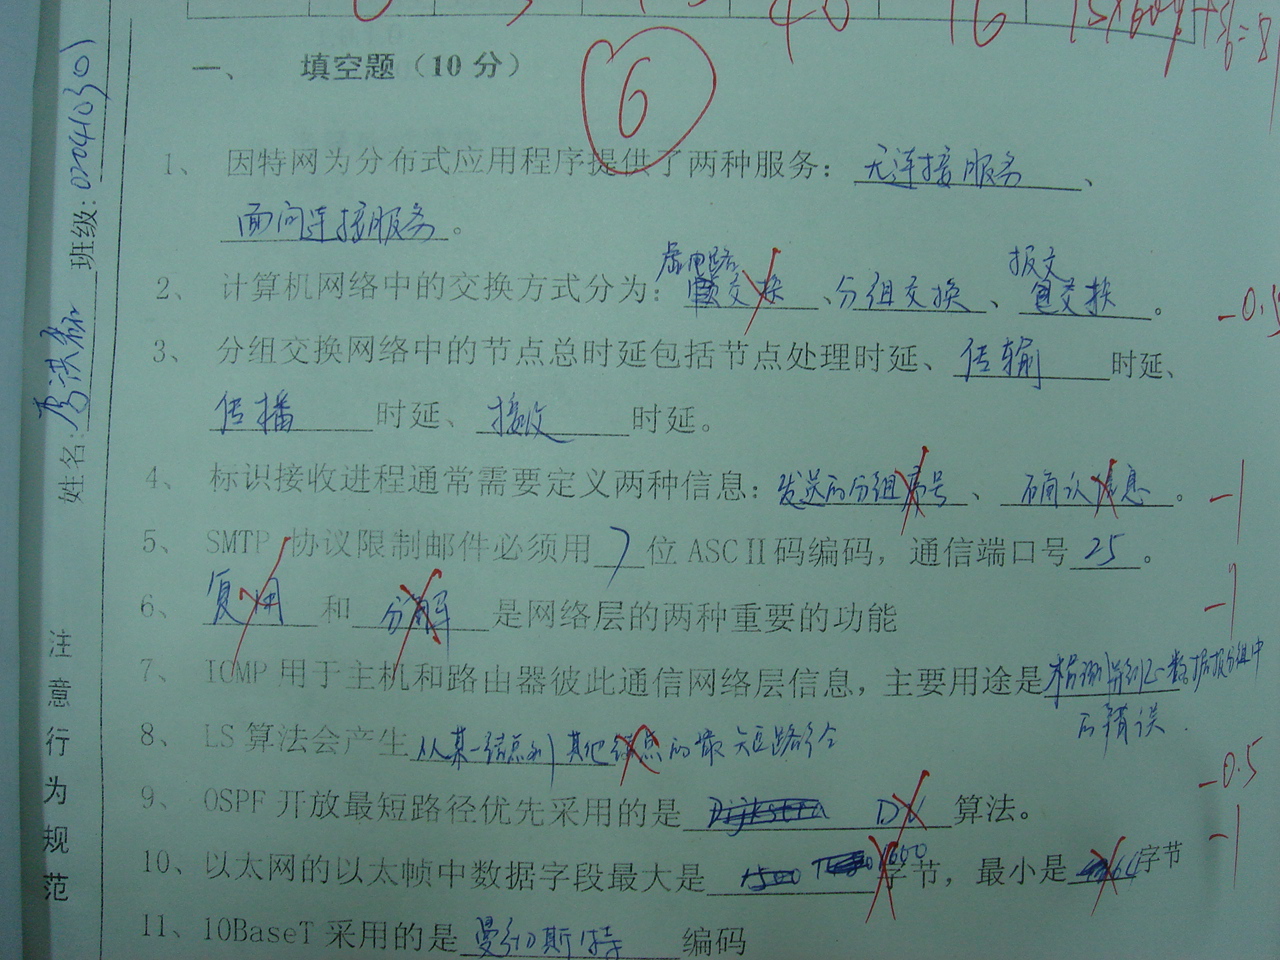 40 16
一、 填空题（10 分）
6
1、 因特网为分布式应用程序提供了两种服务： 无连接服务 、
面向连接服务 。
虚电路 报文
2、 计算机网络中的交换方式分为： 交换 、分组交换 、 包交换 。
3、 分组交换网络中的节点总时延包括节点处理时延、 传输 时延、
传播 时延、 接收 时延。
4、 标识接收进程通常需要定义两种信息： 发送的分组序号 、 确认信息 。 -1
5、 SMTP 协议限制邮件必须用 7 位 ASCⅡ码编码，通信端口号 25 。
6、 复用 和 分解 是网络层的两种重要的功能 -1
7、 ICMP 用于主机和路由器彼此通信网络层信息，主要用途是 数据报分组中
的错误
8、 LS 算法会产生 从某一结点到其他结点的最短路径
-0.5
9、 OSPF 开放最短路径优先采用的是 Dijkstra DV 算法。
-1
10、以太网的以太帧中数据字段最大是 1500 字节，最小是 64 字节
11、10BaseT 采用的是 曼彻斯特 编码
姓名: 班级: 02041030
注意行为规范